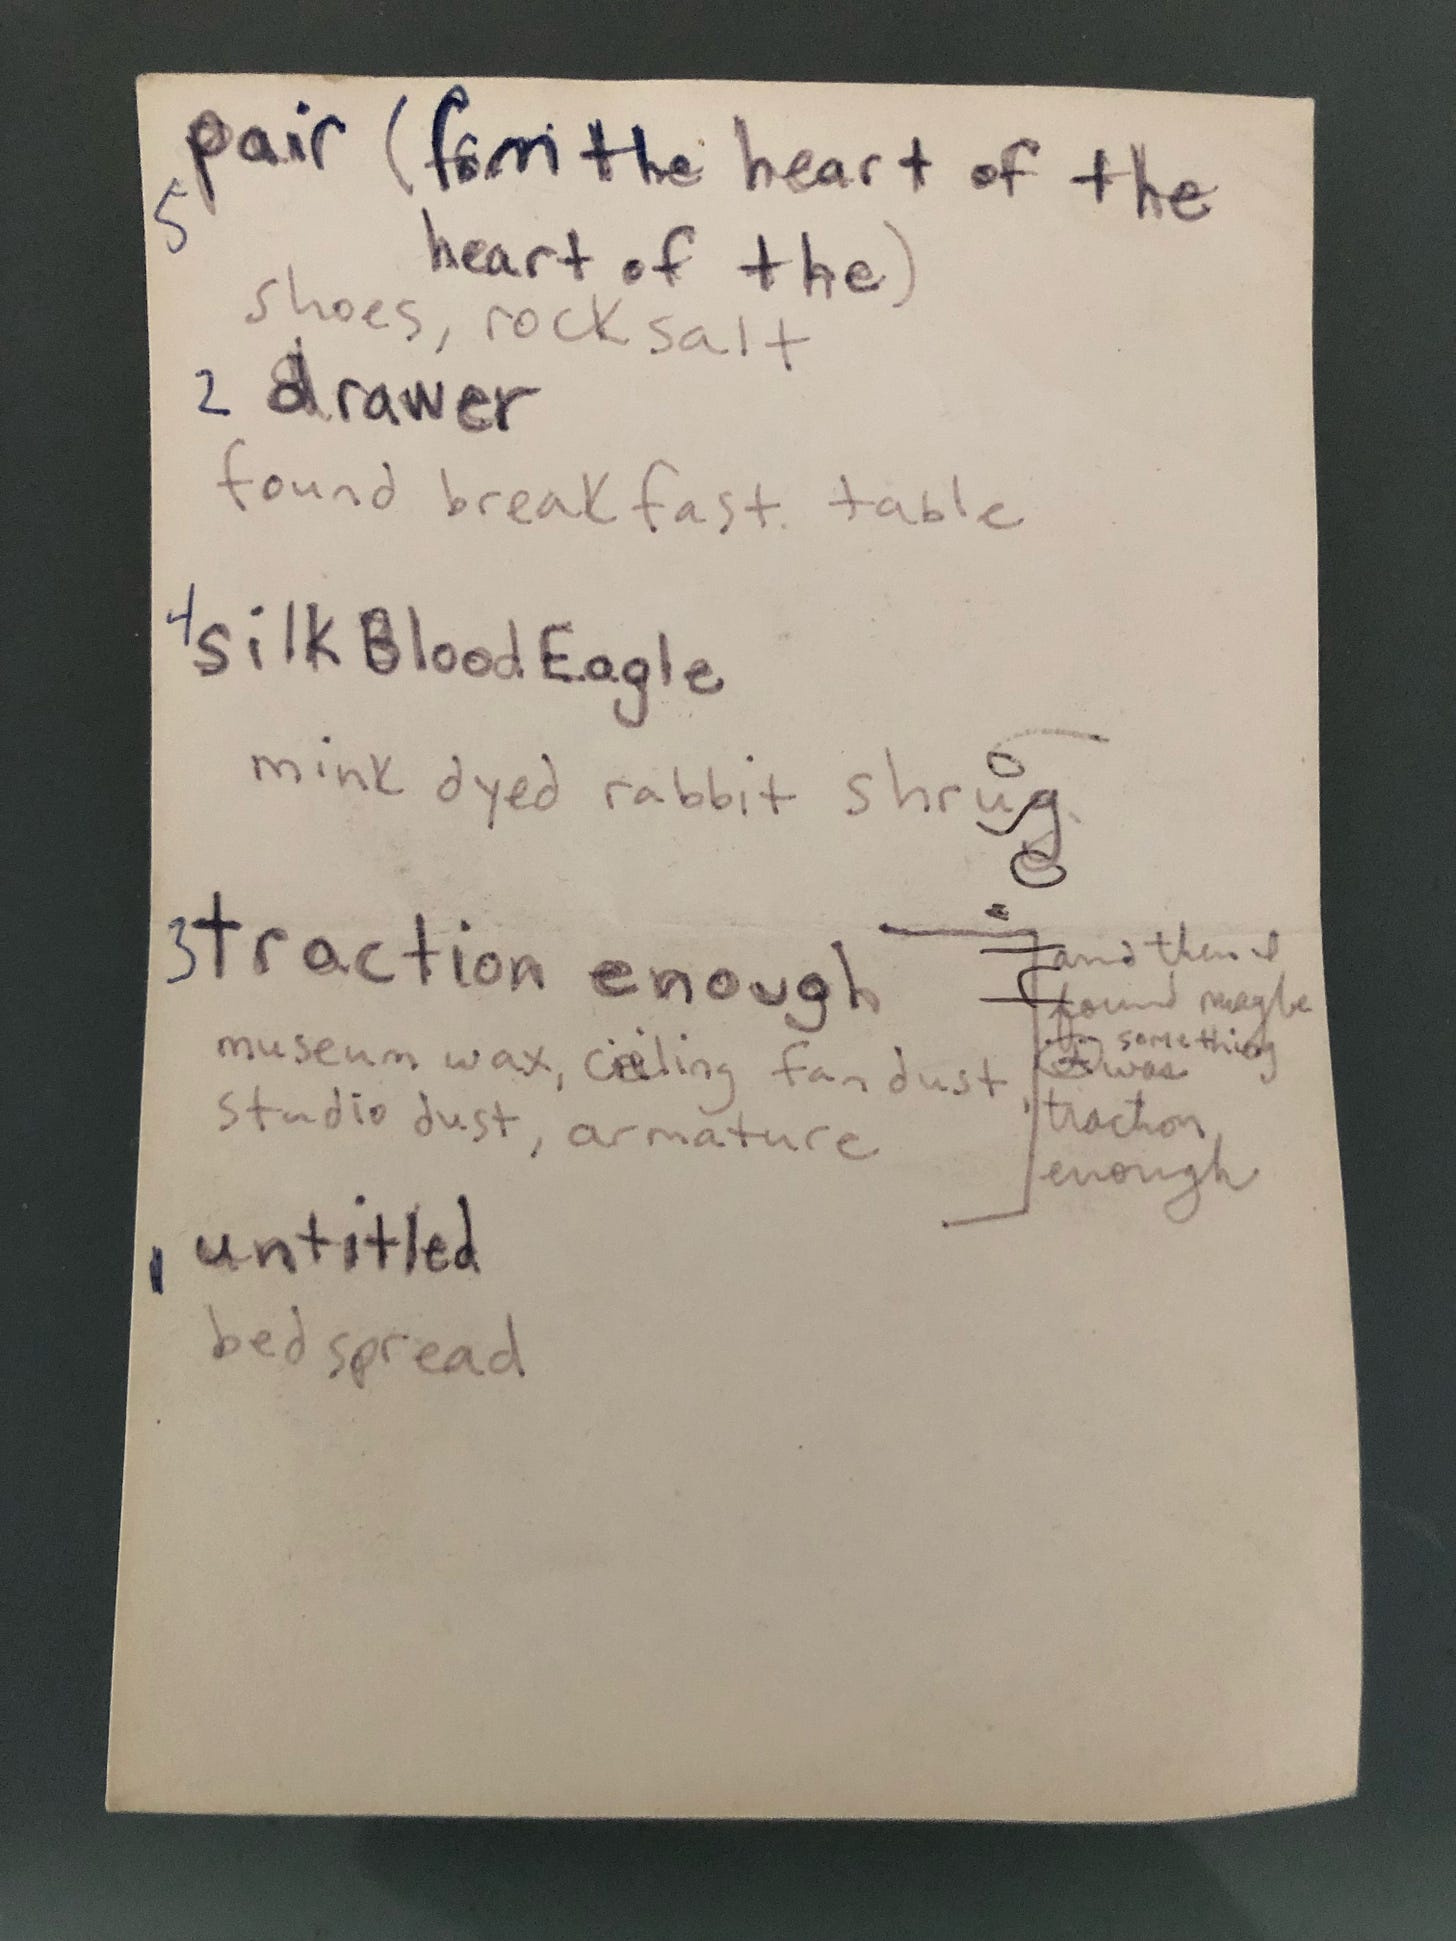 pair (from the heart of the
5
heart of the)
shoes, rock salt
2 drawer
found breakfast table
4 silk Blood Eagle
mink dyed rabbit shrug
3 traction enough
museum wax, ceiling fan dust,
studio dust, armature
and then I
found maybe
something
was
traction
enough
1 untitled
bedspread